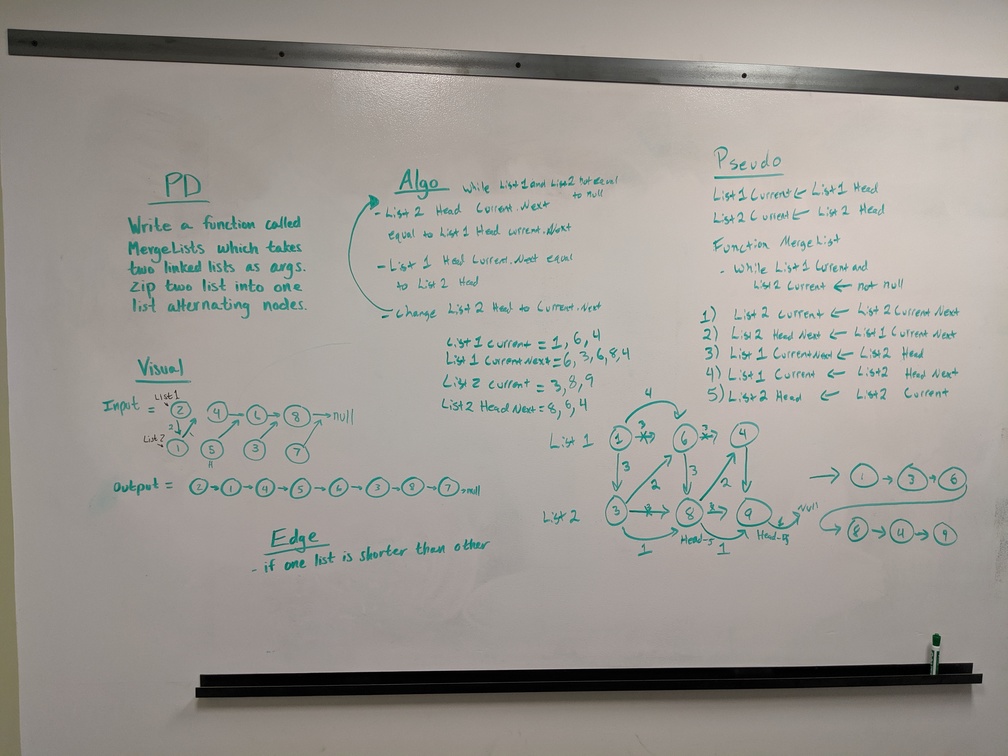 PD
Write a function called
MergeLists which takes
two linked lists as args.
Zip two list into one
list alternating nodes.
Visual
List 1
Input = 2 4 6 8 null
2
List 2
1 5 3 7
H
Output = 2 1 4 5 6 3 8 7 null
Edge
- if one list is shorter than other
Algo while List 1 and List 2 not equal
to null
- List 2 Head Current.Next
equal to List 1 Head current.Next
- List 1 Head Current.Next equal
to List 2 Head
- change List 2 Head to Current.Next
List 1 Current = 1, 6, 4
List 1 Current Next = 6, 3, 6, 8, 4
List 2 current = 3, 8, 9
List 2 Head Next = 8, 6, 4
4
List 1 1 3 6 3 4
3 2 3 2
List 2 3 8 9 Null
1 Head-5 1 Head-5
1 3 6
8 4 9
Pseudo
List 1 Current ← List 1 Head
List 2 Current ← List 2 Head
Function MergeList
- While List 1 Current and
List 2 Current ← not null
1) List 2 Current ← List 2 Current Next
2) List 2 Head Next ← List 1 Current Next
3) List 1 Current Next ← List 2 Head
4) List 1 Current ← List 2 Head Next
5) List 2 Head ← List 2 Current